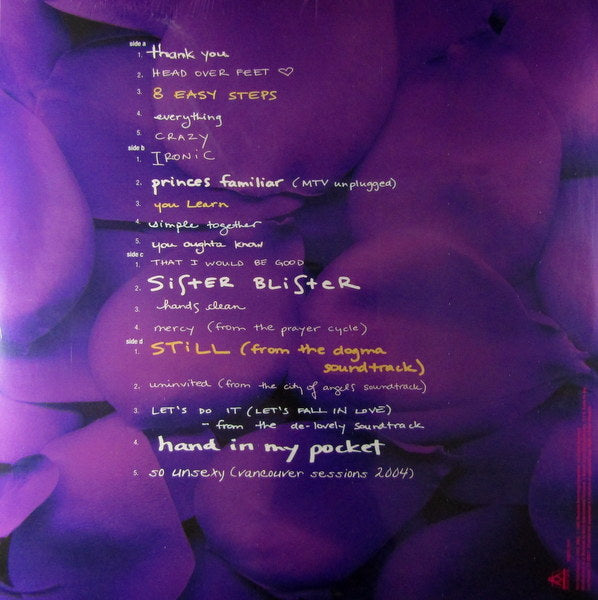 side a
1. thank you
2. HEAD OVER FEET ♡
3. 8 EASY STEPS
4. everything
5. CRAZY
side b
1. IRONiC
2. princes familiar (MTV unplugged)
3. you LEARN
4. simple together
5. you oughta know
side c
1. THAT I WOULD BE GOOD
2. SiSTER BLiSteR
3. hands clean
4. mercy (from the prayer cycle)
side d
1. STiLL (from the dogma
soundtrack)
2. uninvited (from the city of angels soundtrack)
3. LET'S DO IT (LET'S FALL IN LOVE)
- from the de-lovely soundtrack
4. hand in my pocket
5. so unsexy (vancouver sessions 2004)